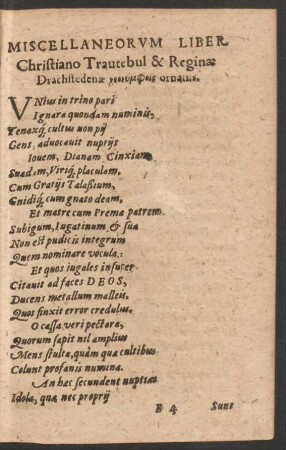 MISCELLANEORVM LIBER
Christiano Trautebul & Reginæ
Drachstedenæ νεονυμφοις ornatiss.
VNius in trino pari
Ignara quondam numinis,
Tenaxq́; cultus non pij
Gens advocauit nuptijs
Iouem, Dianam Cinxiam
Suadam, Viriq́; placulam,
Cum Gratijs Talassium,
Gnidiq́; cum gnato deam,
Et matre cum Prema patrem
Subigum, Iugatinum & sua
Non est pudicis integrum
Quem nominare vocula:
Et quos iugales insuper
Citauit ad faces DEOS,
Ducens metallum malleis,
Quos finxit error credulus.
O cassa veri pectora,
Quorum sapit nil amplius
Mens stulta, quàm quæ cultibus
Colunt profanis numina.
An hæc secundent nuptias
Idola, quæ nec proprij
B 4 Sunt